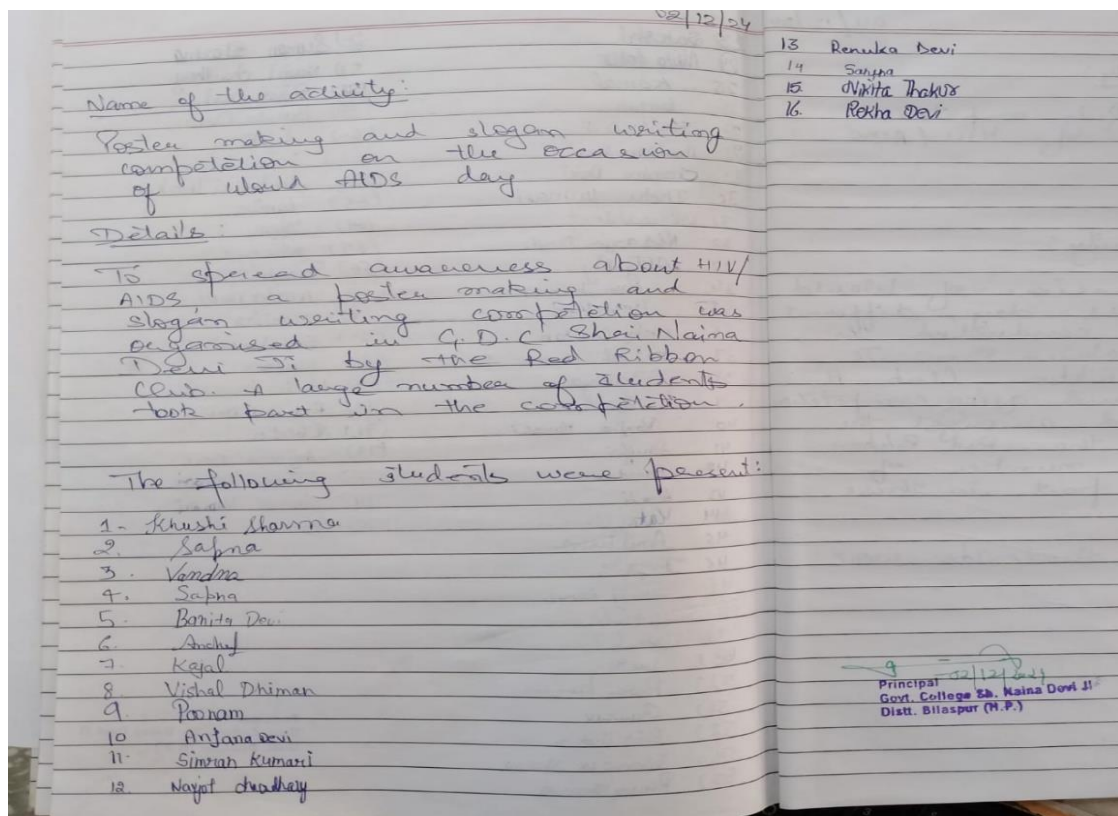 02/12/24
Name of the activity:
Poster making and slogan writing
competetion on the occasion
of world AIDS day
Details:
To spread awareness about HIV/
AIDS a poster making and
slogan writing competetion was
organised in G.D.C Shri Naina
Devi Ji by the Red Ribbon
Club. A large number of students
took part in the competetion.
The following students were present:
1- Khushi Sharma
2. Sapna
3. Vandna
4. Sapna
5. Banita Devi
6. Anchal
7. Kajal
8. Vishal Dhiman
9. Poonam
10 Anjana Devi
11. Simran Kumari
12. Navjot chaudhary
13 Renuka Devi
14
15. Nikita Thakur
16. Rekha Devi
02/12/2024
Principal
Govt. College Sh. Naina Devi Ji
Distt. Bilaspur (H.P.)